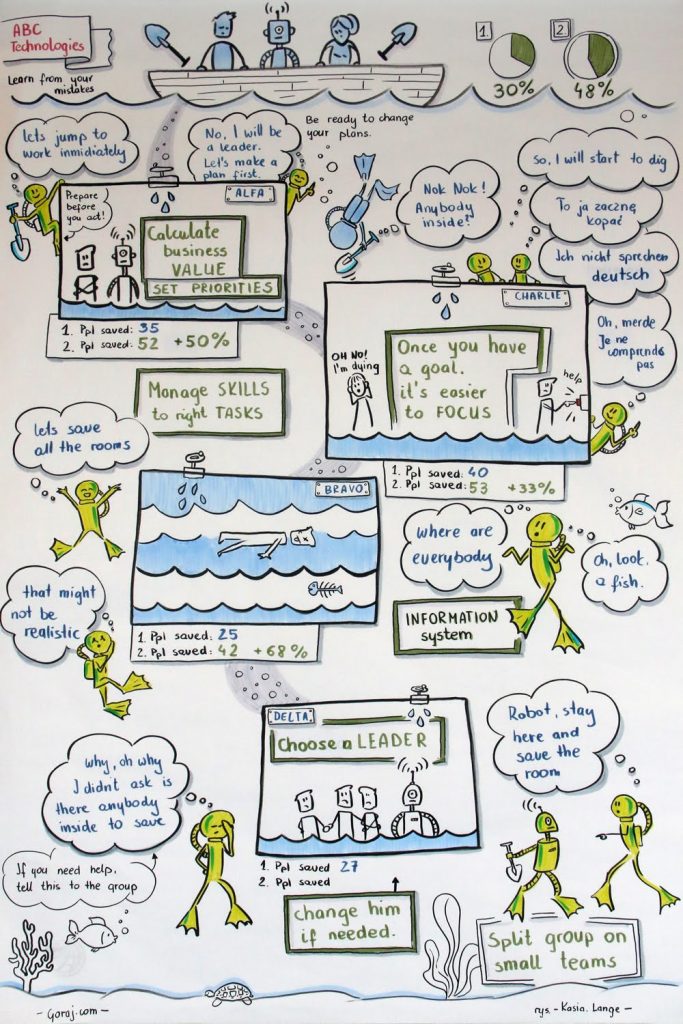 ABC
Technologies
Learn from your
mistakes
1.
30%
2.
48%
Be ready to change
your plans.
lets jump to
work inmidiately
No, I will be
a leader.
Let's make a
plan first.
Nok Nok!
Anybody
inside?
So, I will start to dig
To ja zacznę
kopać
Ich nicht sprechen
deutsch
Oh, merde
Je ne
comprends
pas
ALFA
Prepare
before
you act!
Calculate
business
VALUE
SET PRIORITIES
1. Ppl saved: 35
2. Ppl saved: 52 +50%
CHARLIE
OH NO!
I'm dying
Once you have
a goal.
it's easier
to FOCUS
help
1. Ppl saved: 40
2. Ppl saved: 53 +33%
Manage SKILLS
to right TASKS
lets save
all the rooms
BRAVO
1. Ppl saved: 25
2. Ppl saved: 42 +68%
that might
not be
realistic
where are
everybody
oh, look.
a fish.
INFORMATION
system
DELTA
Choose a LEADER
1. Ppl saved 27
2. Ppl saved
change him
if needed.
Robot, stay
here and
save the
room
why, oh why
I didn't ask is
there anybody
inside to save
If you need help,
tell this to the group
Split group on
small teams
- Goraj.com -
rys. - Kasia. Lange -